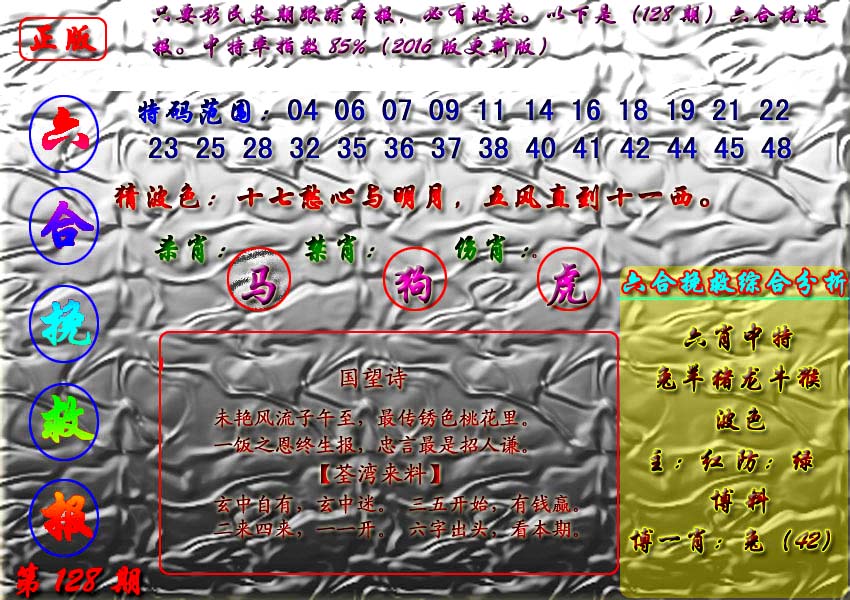 正版
只要彩民长期跟踪本报，必有收获。以下是（128期）六合挽救
报。中特率指数85%（2016版更新版）
六合挽救报
第128期
特码范围：04 06 07 09 11 14 16 18 19 21 22
23 25 28 32 35 36 37 38 40 41 42 44 45 48
猜波色：十七愁心与明月，五风直到十一西。
杀肖：马 禁肖：狗 伤肖：。虎
国望诗
未艳风流子午至，最传锈色桃花里。
一饭之恩终生报，忠言最是招人谦。
【荃湾来料】
玄中自有，玄中迷。 三五开始，有钱赢。
二来四来，一一开。 六字出头，看本期。
六合挽救综合分析
六肖中特
兔羊猪龙牛猴
波色
主：红防：绿
博料
博一肖：兔（42）